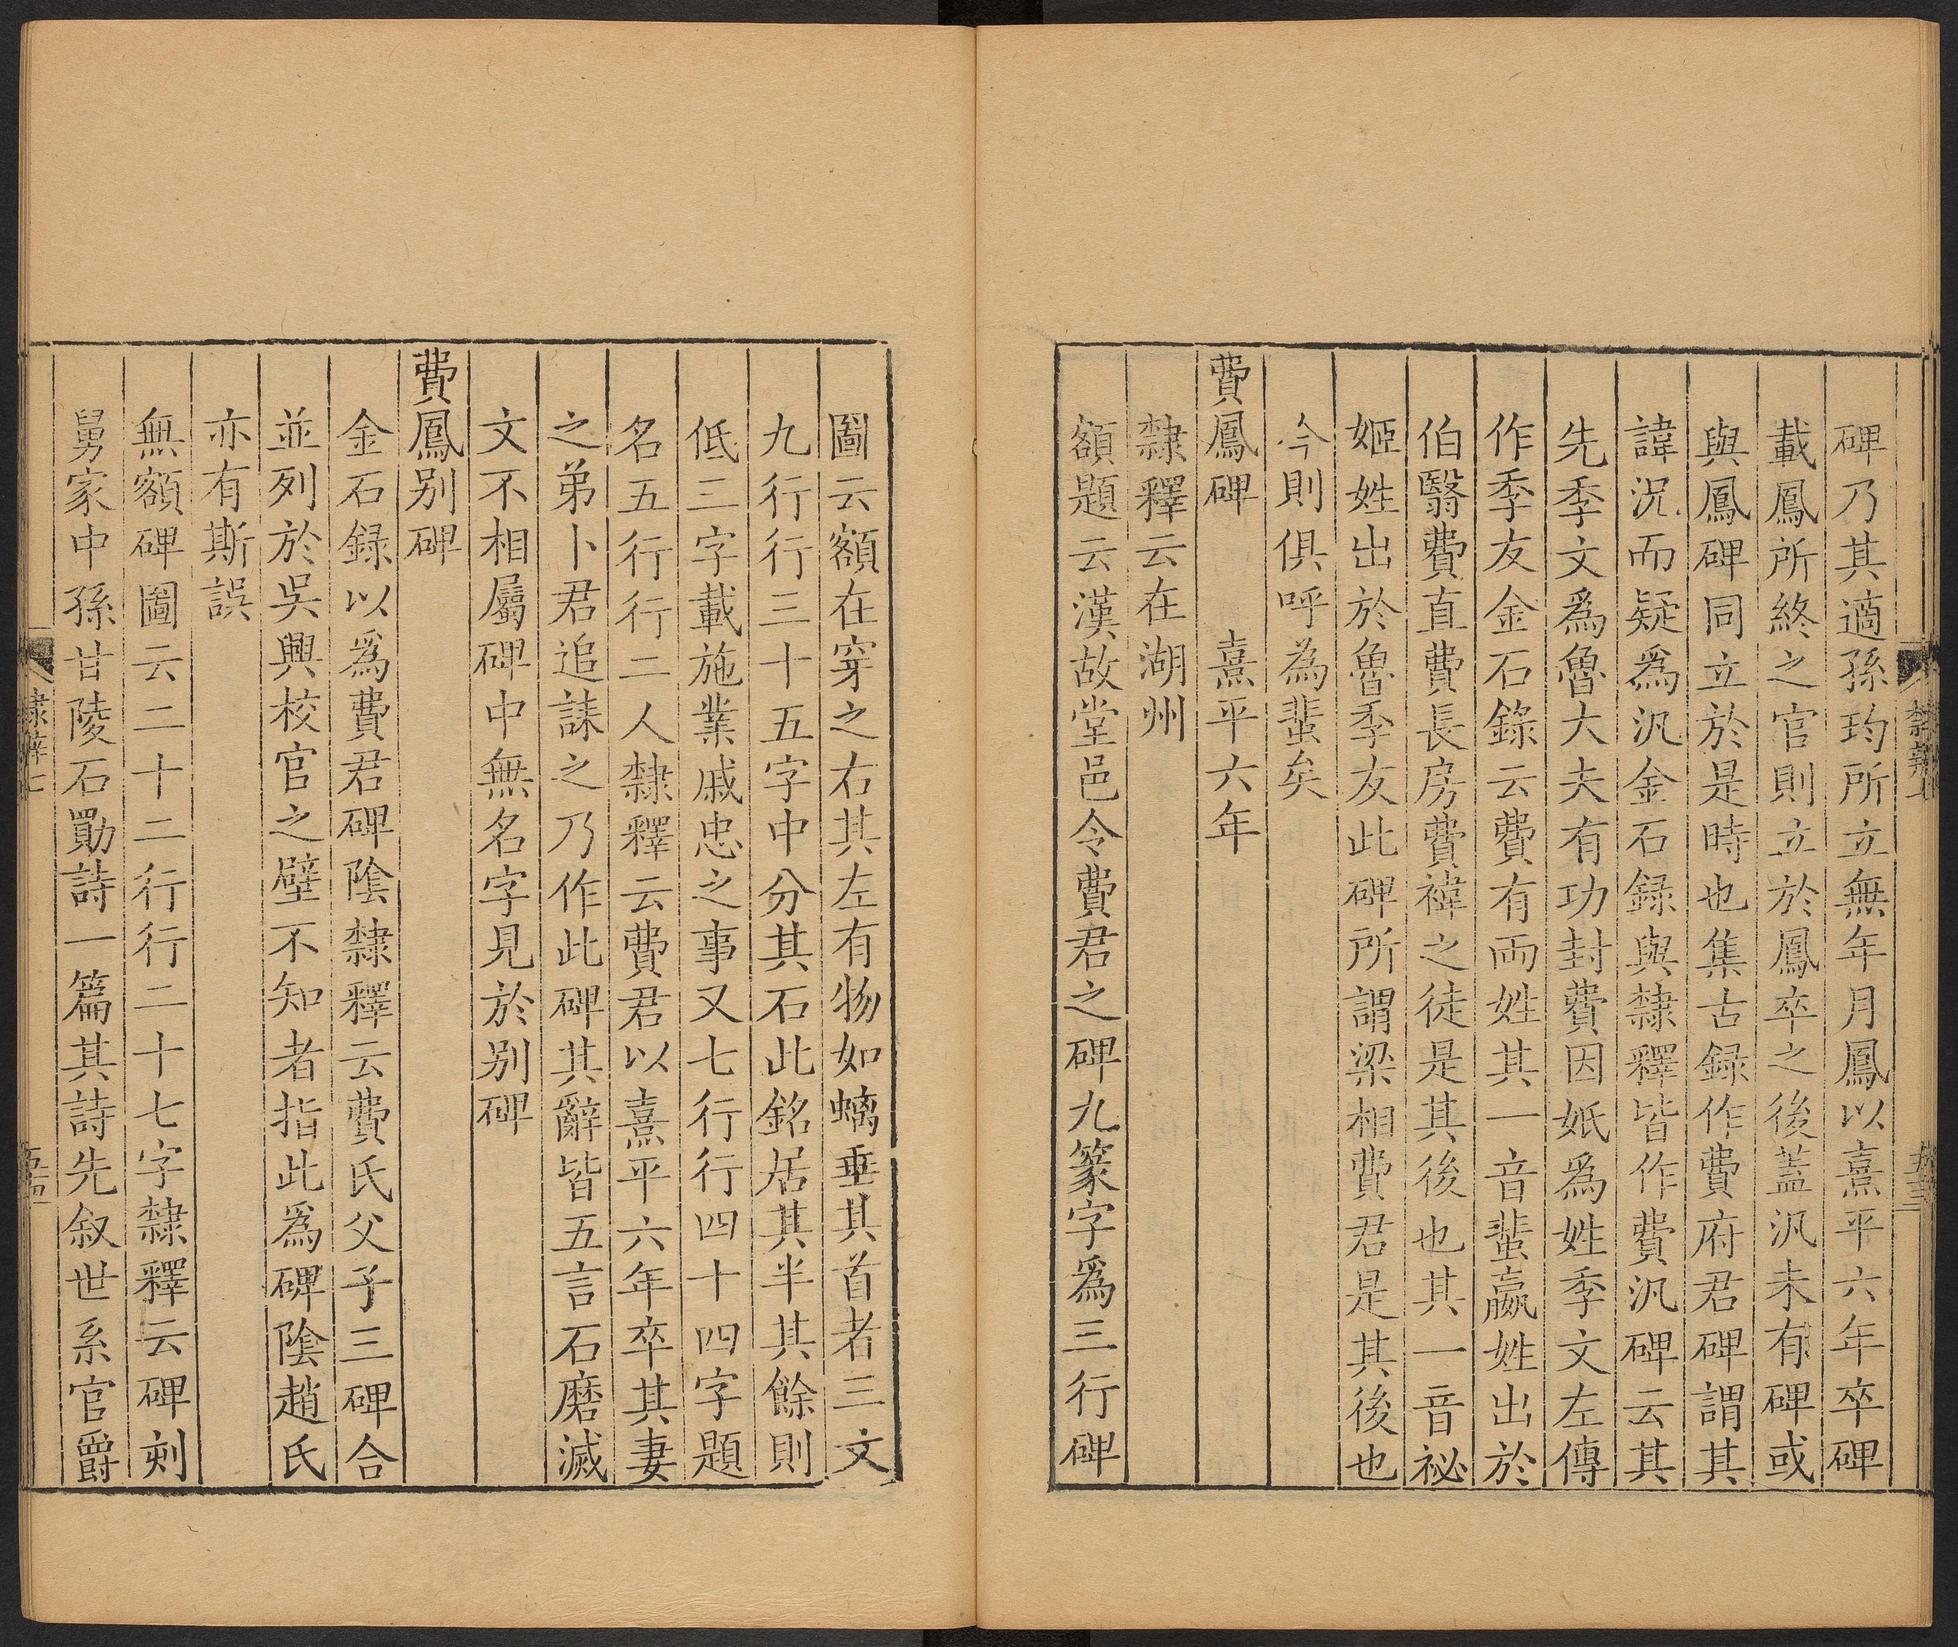 碑乃其適孫玓所立無年月鳳以熹平六年卒碑
載鳳所終之官則立於鳳卒之後蓋汎未有碑或
與鳳碑同立於是時也集古録作費府君碑謂其
諱況而疑爲汎金石録與隸釋皆作費汎碑云其
先季文爲魯大夫有功封費因妷爲姓季文左傳
作季友金石錄云費有兩姓其一音蜚嬴姓出於
伯翳費直費長房費禕之徒是其後也其一音祕
姬姓出於魯季友此碑所謂梁相費君是其後也
今則俱呼為蜚矣
費鳳碑 熹平六年
隸釋云在湖州
額題云漢故堂邑令費君之碑九篆字爲三行碑
圖云額在穿之右其左有物如螭垂其首者三文
九行行三十五字中分其石此銘居其半其餘則
低三字載施業戚忠之事又七行行四十四字題
名五行行二人隸釋云費君以熹平六年卒其妻
之弟卜君追誄之乃作此碑其辭皆五言石磨滅
文不相屬碑中無名字見於别碑
費鳳别碑
金石録以爲費君碑陰隸釋云費氏父子三碑合
並列於吳興校官之壁不知者指此爲碑陰趙氏
亦有斯誤
無額碑圖云二十二行行二十七字隸釋云碑刻
舅家中孫甘陵石勛詩一篇其詩先叙世系官爵